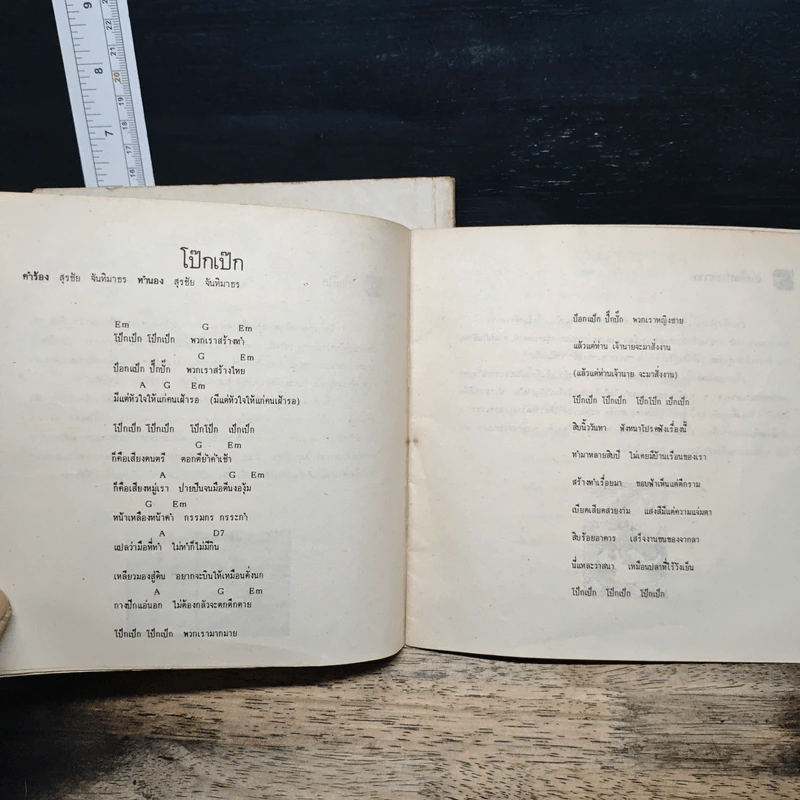 โป๊กเป๊ก
คำร้อง สุรชัย จันทิมาธร ทำนอง สุรชัย จันทิมาธร
Em G Em
โป๊กเป๊ก โป๊กเป๊ก พวกเราสร้างทำ
G Em
ป๊อกแป๊ก ปั๊กปั๊ก พวกเราสร้างไทย
A G Em
มีแต่หัวใจให้แก่คนเฝ้ารอ (มีแต่หัวใจให้แก่คนเฝ้ารอ)
โป๊กเป๊ก โป๊กเป๊ก โป๊กโป๊ก เป๊กเป๊ก
G Em
ก็คือเสียงดนตรี ตอกตีย้ำค่ำเช้า
A G Em
ก็คือเสียงหมู่เรา ป่ายปีนจนมือตีนงองุ้ม
G Em
หน้าเหลืองหน้าดำ กรรมกร กรระกำ
A D7
แปลว่ามือที่ทำ ไม่ทำก็ไม่มีกิน
เหลียวมองสู่ดิน อยากจะบินให้เหมือนดั่งนก
A G Em
กางปีกแอ่นอก ไม่ต้องกลัวจะตกตึกตาย
โป๊กเป๊ก โป๊กเป๊ก พวกเรามากมาย
ป๊อกแป๊ก ปั๊กปั๊ก พวกเราหญิงชาย
แล้วแต่ท่าน เจ้านายจะมาสั่งงาน
(แล้วแต่ท่านเจ้านาย จะมาสั่งงาน)
โป๊กเป๊ก โป๊กเป๊ก โป๊กโป๊ก เป๊กเป๊ก
สิบนิ้ววันทา ฟังหนาโปรดฟังเรื่องนี้
ทำมาหลายสิบปี ไม่เคยมีบ้านเรือนของเรา
สร้างทำเรื่อยมา ขอบฟ้าเห็นแต่ตึกราม
เบียดเสียดสวยงาม แสงสีมีแต่ความแจ่มตา
สิบร้อยอาคาร เสร็จงานขนของจากลา
นี่แหละวาสนา เหมือนปลาที่ไร้วังเย็น
โป๊กเป๊ก โป๊กเป๊ก โป๊กเป๊ก
9
22
21
8
20
19
18
7
17